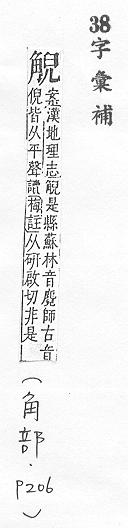 38字彙補
觬案漢地理志觬是縣蘇林音麑師古音
倪皆从平聲讀補註从研啟切非是
(角部.p206)